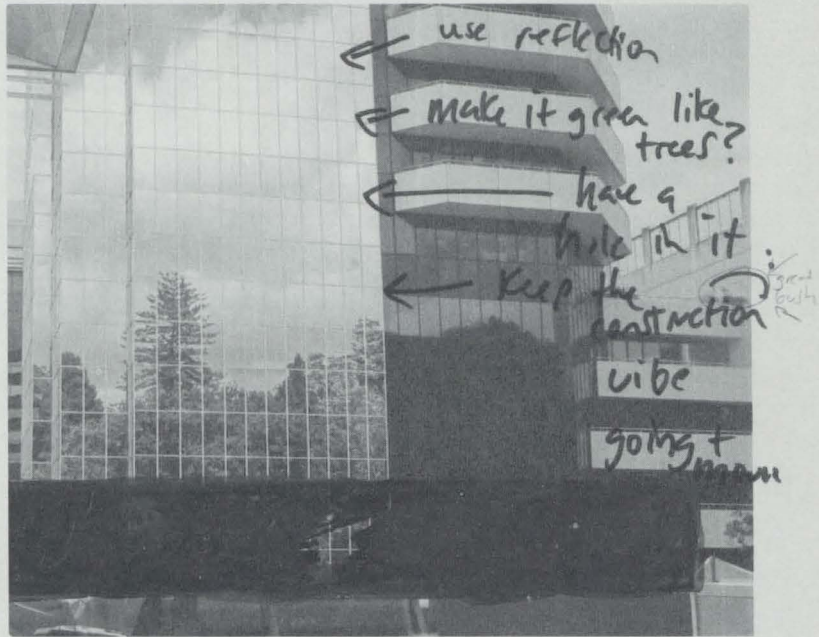 use reflection
make it green like
trees?
have a
hole in it
keep the
construction
vibe
going +
green
bush